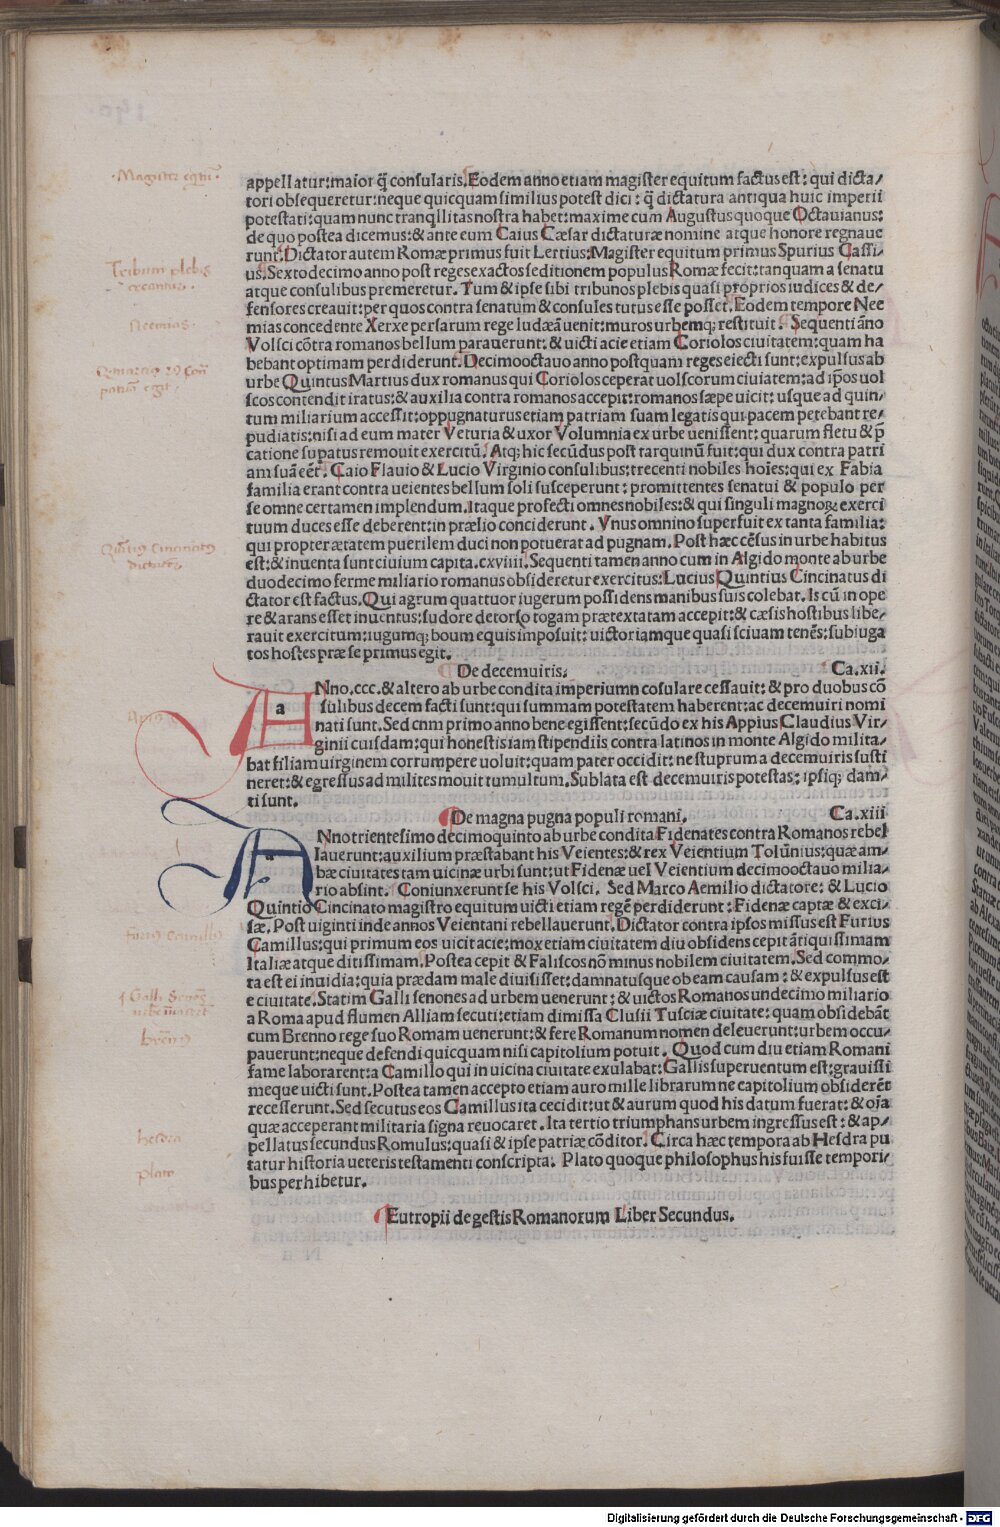 appellatur:maior q̃ consularis.Eodem anno etiam magister equitum factus est: qui dicta/
tori obsequeretur:neque quicquam similius potest dici: q̃ dictatura antiqua huic imperii
potestati:quam nunc tranq̃litas nostra habet:maxime cum Augustus quoque Octauianus:
de quo postea dicemus:& ante eum Caius Cæsar dictaturæ nomine atque honore regnaue
runt.Dictator autem Romæ primus fuit Lertius:Magister equitum primus Spurius Cassi/
us.Sexto decimo anno post reges exactos seditionem populus Romæ fecit:tanquam a senatu
atque consulibus premeretur. Tum & ipse sibi tribunos plebis quasi proprios iudices & de/
fensores creauit:per quos contra senatum & consules tutus esse posset.Eodem tempore Nee
mias concedente Xerxe persarum rege Iudæã uenit:muros urbemq; restituit. Sequenti ãno
Volsci cõtra romanos bellum parauerunt:& uicti acie etiam Coriolos ciuitatem:quam ha
bebant optimam perdiderunt.Decimooctauo anno postquam reges eiecti sunt:expulsus ab
urbe Quintus Martius dux romanus qui Coriolos ceperat uolscorum ciuiatem:ad ip̃os uol
scos contendit iratus:& auxilia contra romanos accepit:romanos sæpe uicit: usque ad quin/
tum miliarium accessit:oppugnaturus etiam patriam suam legatis qui pacem petebant re/
pudiatis:nisi ad eum mater Veturia & uxor Volumnia ex urbe uenissent: quarum fletu & p̃
catione supatus remouit exercitũ. Atq; hic secũdus post tarquinũ fuit:qui dux contra patri
am suã eẽt. Caio Flauio & Lucio Virginio consulibus:trecenti nobiles hoĩes:qui ex Fabia
familia erant contra ueientes bellum soli susceperunt: promittentes senatui & populo per
se omne certamen implendum.Itaque profecti omnes nobiles:& qui singuli magnoꝝ exerci
tuum duces esse deberent:in prælio conciderunt. Vnus omnino superfuit ex tanta familia:
qui propter ætatem puerilem duci non potuerat ad pugnam.Post hæc cẽsus in urbe habitus
est:& inuenta sunt ciuium capita.cxviiii.Sequenti tamen anno cum in Algido monte ab urbe
duodecimo ferme miliario romanus obsideretur exercitus:Lucius Quintius Cincinatus di
ctator est factus.Qui agrum quattuor iugerum possidens manibus suis colebat. Is cũ in ope
re & arans esset inuentus:sudore deterso togam prætextatam accepit:& cæsis hostibus libe/
rauit exercitum:iugumq; boum equis imposuit: uictoriamque quasi sciuam tenẽs:subiuga
tos hostes præ se primus egit.
De decemuiris: Ca.xii.
a
ANno.ccc.& altero ab urbe condita imperiumn cõsulare cessauit: & pro duobus cõ
sulibus decem facti sunt:qui summam potestatem haberent:ac decemuiri nomi
nati sunt.Sed cnm primo anno bene egissent:secũdo ex his Appius Claudius Vir/
ginii cuisdam:qui honestis iam stipendiis contra latinos in monte Algido milita/
bat filiam uirginem corrumpere uoluit:quam pater occidit: ne stuprum a decemuiris susti
neret:& egressus ad milites mouit tumultum.Sublata est decemuiris potestas: ipsiq; dam/
ti sunt.
De magna pugna populi romani. Ca.xiii
a
ANno trientesimo decimoquinto ab urbe condita Fidenates contra Romanos rebel
lauerunt:auxilium præstabant his Veientes:& rex Veientium Tolũnius:quæ am/
bæ ciuitates tam uicinæ urbi sunt:ut Fidenæ uel Veientium decimooctauo milia/
rio absint. Coniunxerunt se his Volsci. Sed Marco Aemilio dictatore: & Lucio
Quintio Cincinato magistro equitum uicti etiam regẽ perdiderunt:Fidenæ captæ & exci/
sæ.Post uiginti inde annos Veientani rebellauerunt.Dictator contra ipsos missus est Furius
Camillus:qui primum eos uicit acie:mox etiam ciuitatem diu obsidens cepit ãtiquissimam
Italiæ atque ditissimam.Postea cepit & Faliscos nõ minus nobilem ciuitatem.Sed commo/
ta est ei inuidia:quia prædam male diuisisset:damnatusque ob eam causam:& expulsus est
e ciuitate.Statim Galli senones ad urbem uenerunt:& uictos Romanos undecimo miliario
a Roma apud flumen Alliam secuti:etiam dimissa Clusii Tusciæ ciuitate: quam obsidebãt
cum Brenno rege suo Romam uenerunt:& fere Romanum nomen deleuerunt:urbem occu/
pauerunt:neque defendi quicquam nisi capitolium potuit. Quod cum diu etiam Romani
fame laborarent:a Camillo qui in uicina ciuitate exulabat:Gallis superuentum est:grauissi
meque uicti sunt.Postea tamen accepto etiam auro mille librarum ne capitolium obsiderẽt
recesserunt.Sed secutus eos Camillus ita cecidit:ut & aurum quod his datum fuerat:& oĩa
quæ acceperant militaria signa reuocaret.Ita tertio triumphans urbem ingressus est:& ap/
pellatus secundus Romulus:quasi & ipse patriæ cõditor.Circa hæc tempora ab Hesdra pu
tatur historia ueteris testamenti conscripta. Plato quoque philosophus his fuisse tempori/
bus perhibetur.
Eutropii de gestis Romanorum Liber Secundus.
Tribuni plebis
creantur.
Neemias.
hesdra
plato
Digitalisierung gefördert durch die Deutsche Forschungsgemeinschaft - DFG